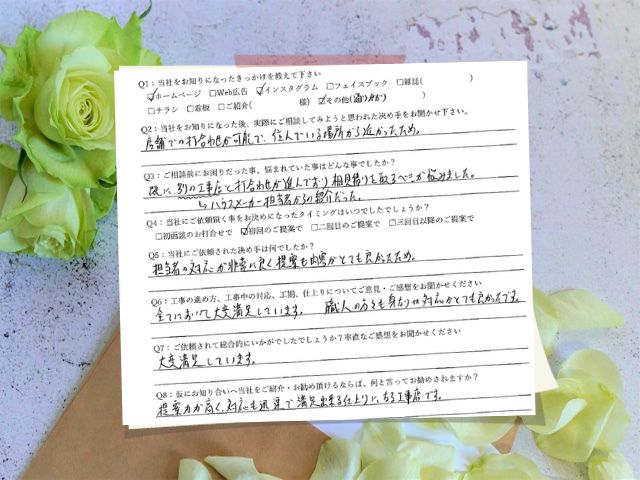 Q1：当社をお知りになったきっかけを教えて下さい
☑ホームページ □Web広告 ☑インスタグラム □フェイスブック □雑誌( )
□チラシ □看板 □ご紹介( 様) ☑その他(通りがかり)
Q2：当社をお知りになった後、実際にご相談してみようと思われた決め手をお聞かせ下さい。
店舗での打合わせが可能で、住んでいる場所から近かったため。
Q3：ご相談前にお困りだった事、悩まれていた事はどんな事でしたか？
既に、別の工事店と打合わせが進んでおり相見積りを取るべきか悩みました。
↳ハウスメーカー担当者からの紹介だった。
Q4：当社にご依頼頂く事をお決めになったタイミングはいつでしたでしょうか？
□初面談のお打合せで ☑初回のご提案で □二回目のご提案で □三回目以降のご提案で
Q5：当社にご依頼された決め手は何でしたか？
担当者の対応が非常に良く提案も内容がとても良かったため。
Q6：工事の進め方、工事中の対応、工期、仕上りについてご意見・ご感想をお聞かせください
全てにおいて大変満足しています。 職人の方々も身なりや対応がとても良かったです。
Q7：ご依頼されて総合的にいかがでしたでしょうか？率直なご感想をお聞かせください
大変満足しています。
Q8：仮にお知り合いへ当社をご紹介・お勧め頂けるならば、何と言ってお勧めされますか？
提案力が高く、対応も迅速で満足出来る仕上りになる工事店です。